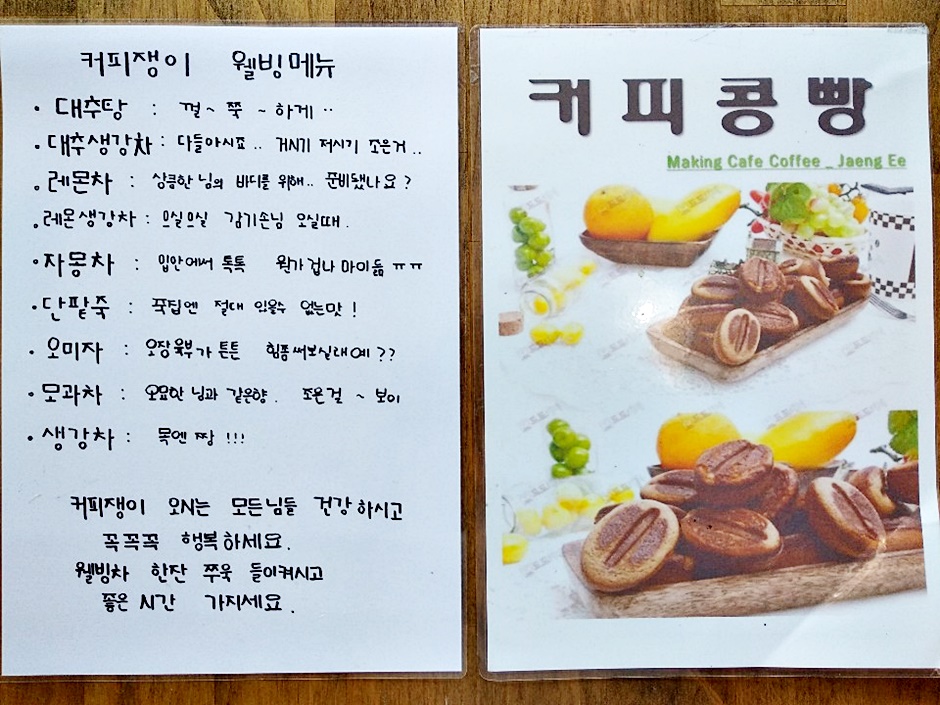 커피쟁이 웰빙메뉴
• 대추탕 : 걸~ 쭉 ~ 하게 ..
• 대추생강차 : 다들아시죠 .. 거N기 저시기 조은거 ..
• 레몬차 : 상큼한 님의 바디를 위해.. 준비됐나요 ?
• 레몬생강차 : 으실으실 감기손님 오실때 .
• 자몽차 : 입안에서 톡톡 뭔가 겁나 마이듦 ㅠㅠ
• 단팥죽 : 꾹집엔 절대 있을수 없는맛 !
• 오미자 : 오장육부가 튼튼 힘쫌써보실래예 ??
• 모과차 : 오묘한 님과 같은향 . 조은걸 ~ 보이
• 생강차 : 목엔 짱 !!!
커피쟁이 오N는 모든님들 건강하시고
꼭꼭꼭 행복하세요 .
웰빙차 한잔 쭈욱 들이켜시고
좋은 시간 가지세요 .
커피콩빵
Making Cafe Coffee _ Jaeng Ee